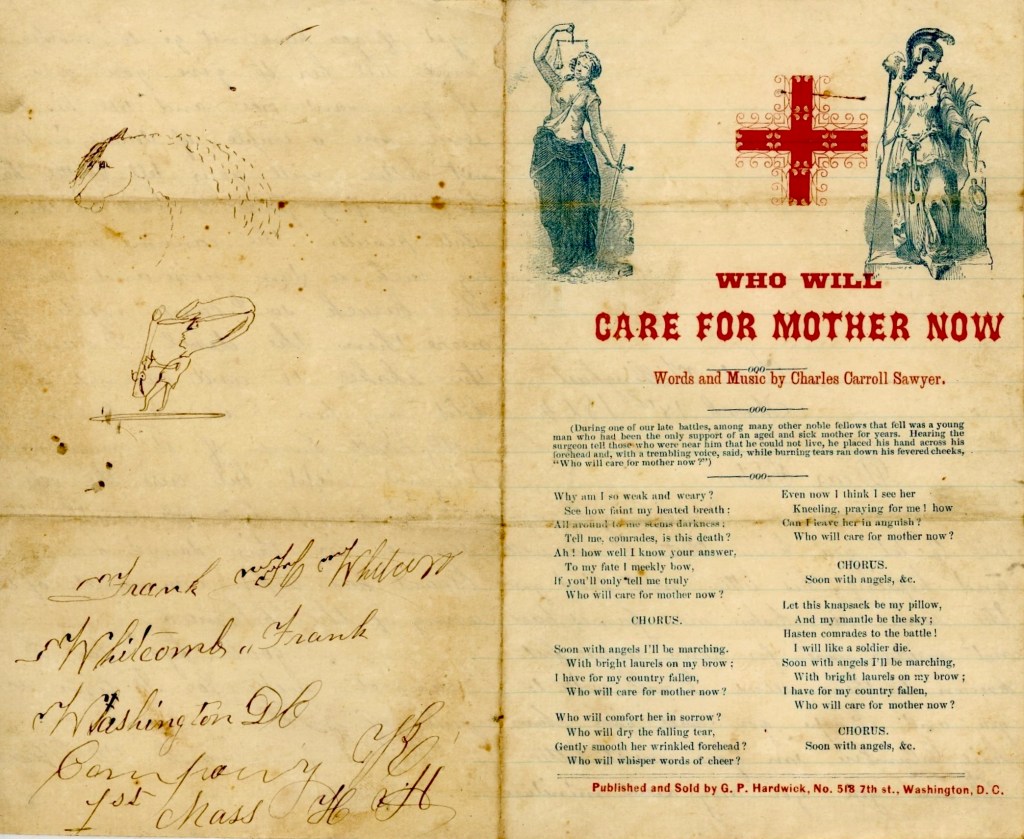 Frank H Whitcom
Whitcomb, Frank
Washington DC
Company K
1st Mass H H
WHO WILL
CARE FOR MOTHER NOW
Words and Music by Charles Carroll Sawyer.
(During one of our late battles, among many other noble fellows that fell was a young
man who had been the only support of an aged and sick mother for years. Hearing the
surgeon tell those who were near him that he could not live, he placed his hand across his
forehead and, with a trembling voice, said, while burning tears ran down his fevered cheeks,
"Who will care for mother now?")
Why am I so weak and weary?
See how faint my heated breath:
All around to me seems darkness;
Tell me, comrades, is this death?
Ah! how well I know your answer,
To my fate I meekly bow,
If you'll only tell me truly
Who will care for mother now?
CHORUS.
Soon with angels I'll be marching.
With bright laurels on my brow;
I have for my country fallen,
Who will care for mother now?
Who will comfort her in sorrow?
Who will dry the falling tear,
Gently smooth her wrinkled forehead?
Who will whisper words of cheer?
Even now I think I see her
Kneeling, praying for me! how
Can I leave her in anguish?
Who will care for mother now?
CHORUS.
Soon with angels, &c.
Let this knapsack be my pillow,
And my mantle be the sky;
Hasten comrades to the battle!
I will like a soldier die.
Soon with angels I'll be marching,
With bright laurels on my brow;
I have for my country fallen,
Who will care for mother now?
CHORUS.
Soon with angels, &c.
Published and Sold by G. P. Hardwick, No. 518 7th st., Washington, D. C.